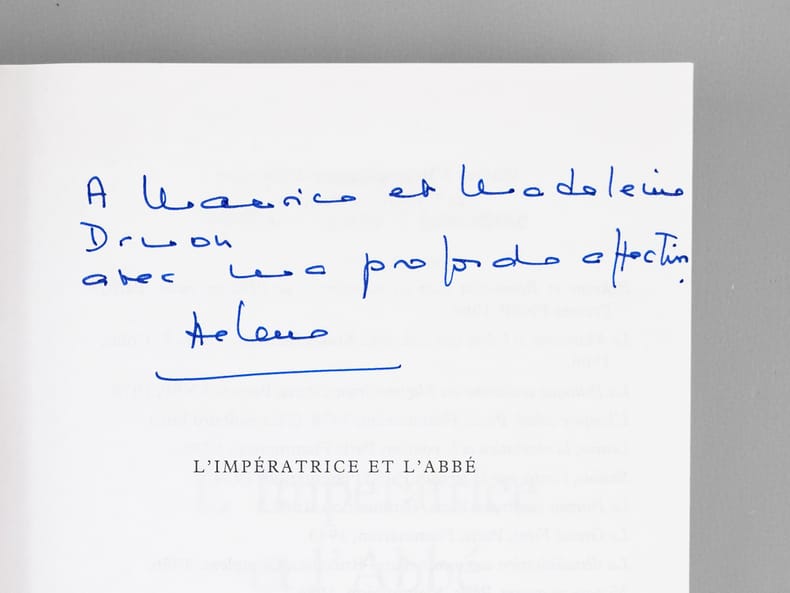 A Maurice et Madeleine
Druon
avec ma profonde affection.
Hélène
L'IMPÉRATRICE ET L'ABBÉ